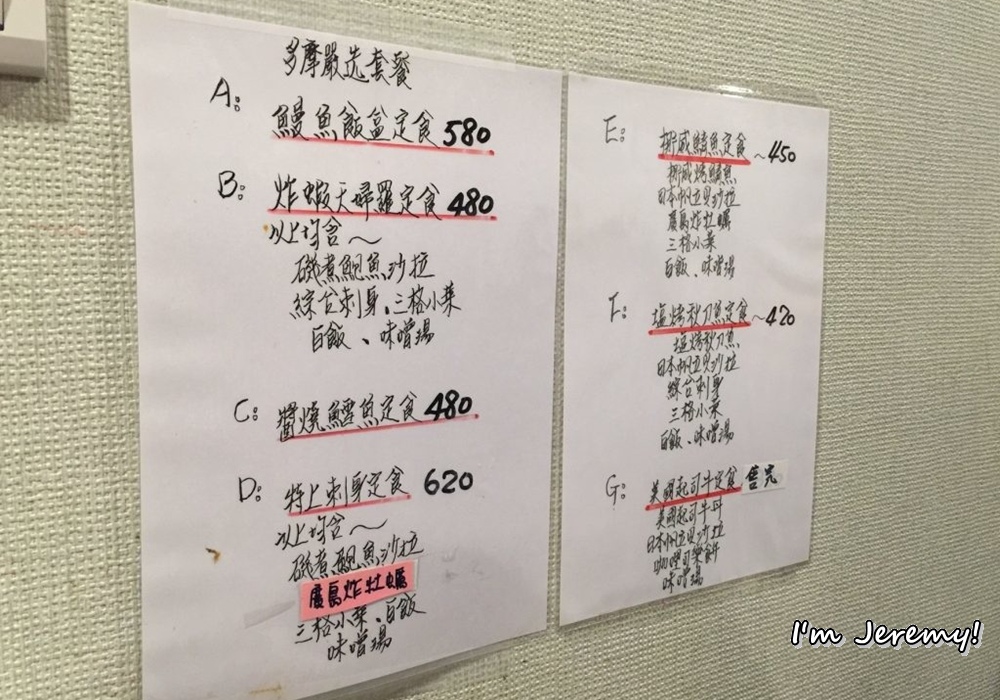 多摩嚴选套餐
A: 鰻魚飯盒定食 580
B: 炸蝦天婦羅定食 480
以上均含~
磯煮鮑魚沙拉
綜合刺身、三格小菜
白飯、味噌湯
C: 醬燒鱈魚定食 480
D: 特上刺身定食 620
以上均含~
磯煮鮑魚沙拉
廣島炸牡蠣
三格小菜、白飯
味噌湯
E: 挪威鯖魚定食~450
挪威烤鯖魚
日本帆立貝沙拉
廣島炸牡蠣
三格小菜
白飯、味噌湯
F: 塩烤秋刀魚定食~420
塩烤秋刀魚
日本帆立貝沙拉
綜合刺身
三格小菜
白飯、味噌湯
G: 美國起司牛定食 售完
美國起司牛丼
日本帆立貝沙拉
咖哩可樂餅
味噌湯
I'm Jeremy!